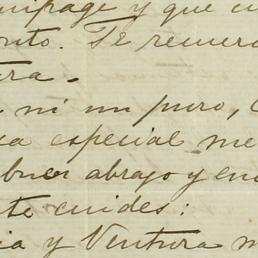 uipage y que u
ento. Te recuero
ura.
ni un puro, c
ca especial me
buen abrajo y en
te cuides:
ia y Ventura m